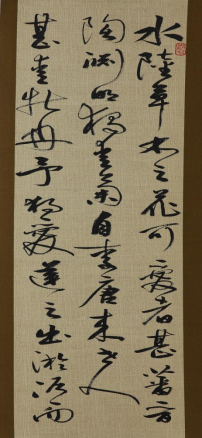 水陸草木之花可愛者甚蕃晋
陶渊明独爱菊自李唐来世人
甚爱牡丹予独愛蓮之出淤泥而